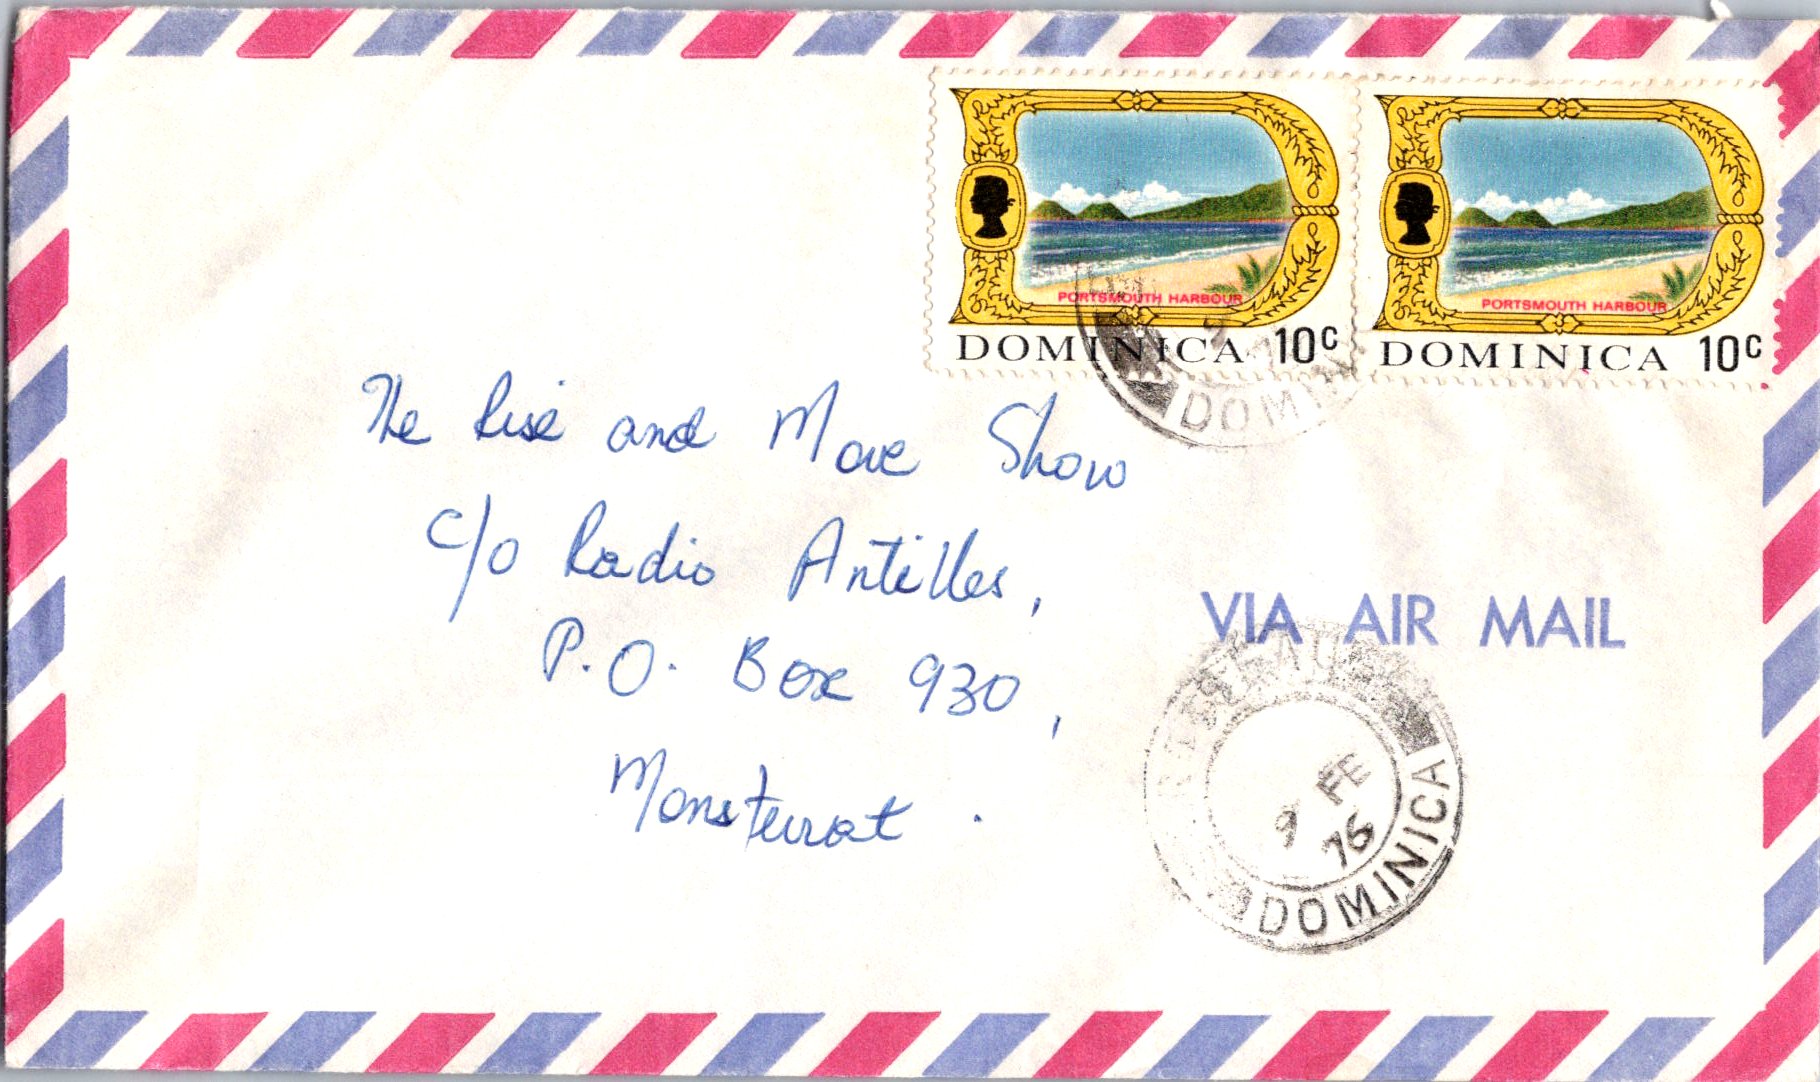 PORTSMOUTH HARBOUR
DOMINICA 10c
PORTSMOUTH HARBOUR
DOMINICA 10c
DOMINI
The Rise and Move Show
c/o Radio Antilles,
P.O. Box 930,
Monsterrat.
VIA AIR MAIL
9 FE
76
DOMINICA